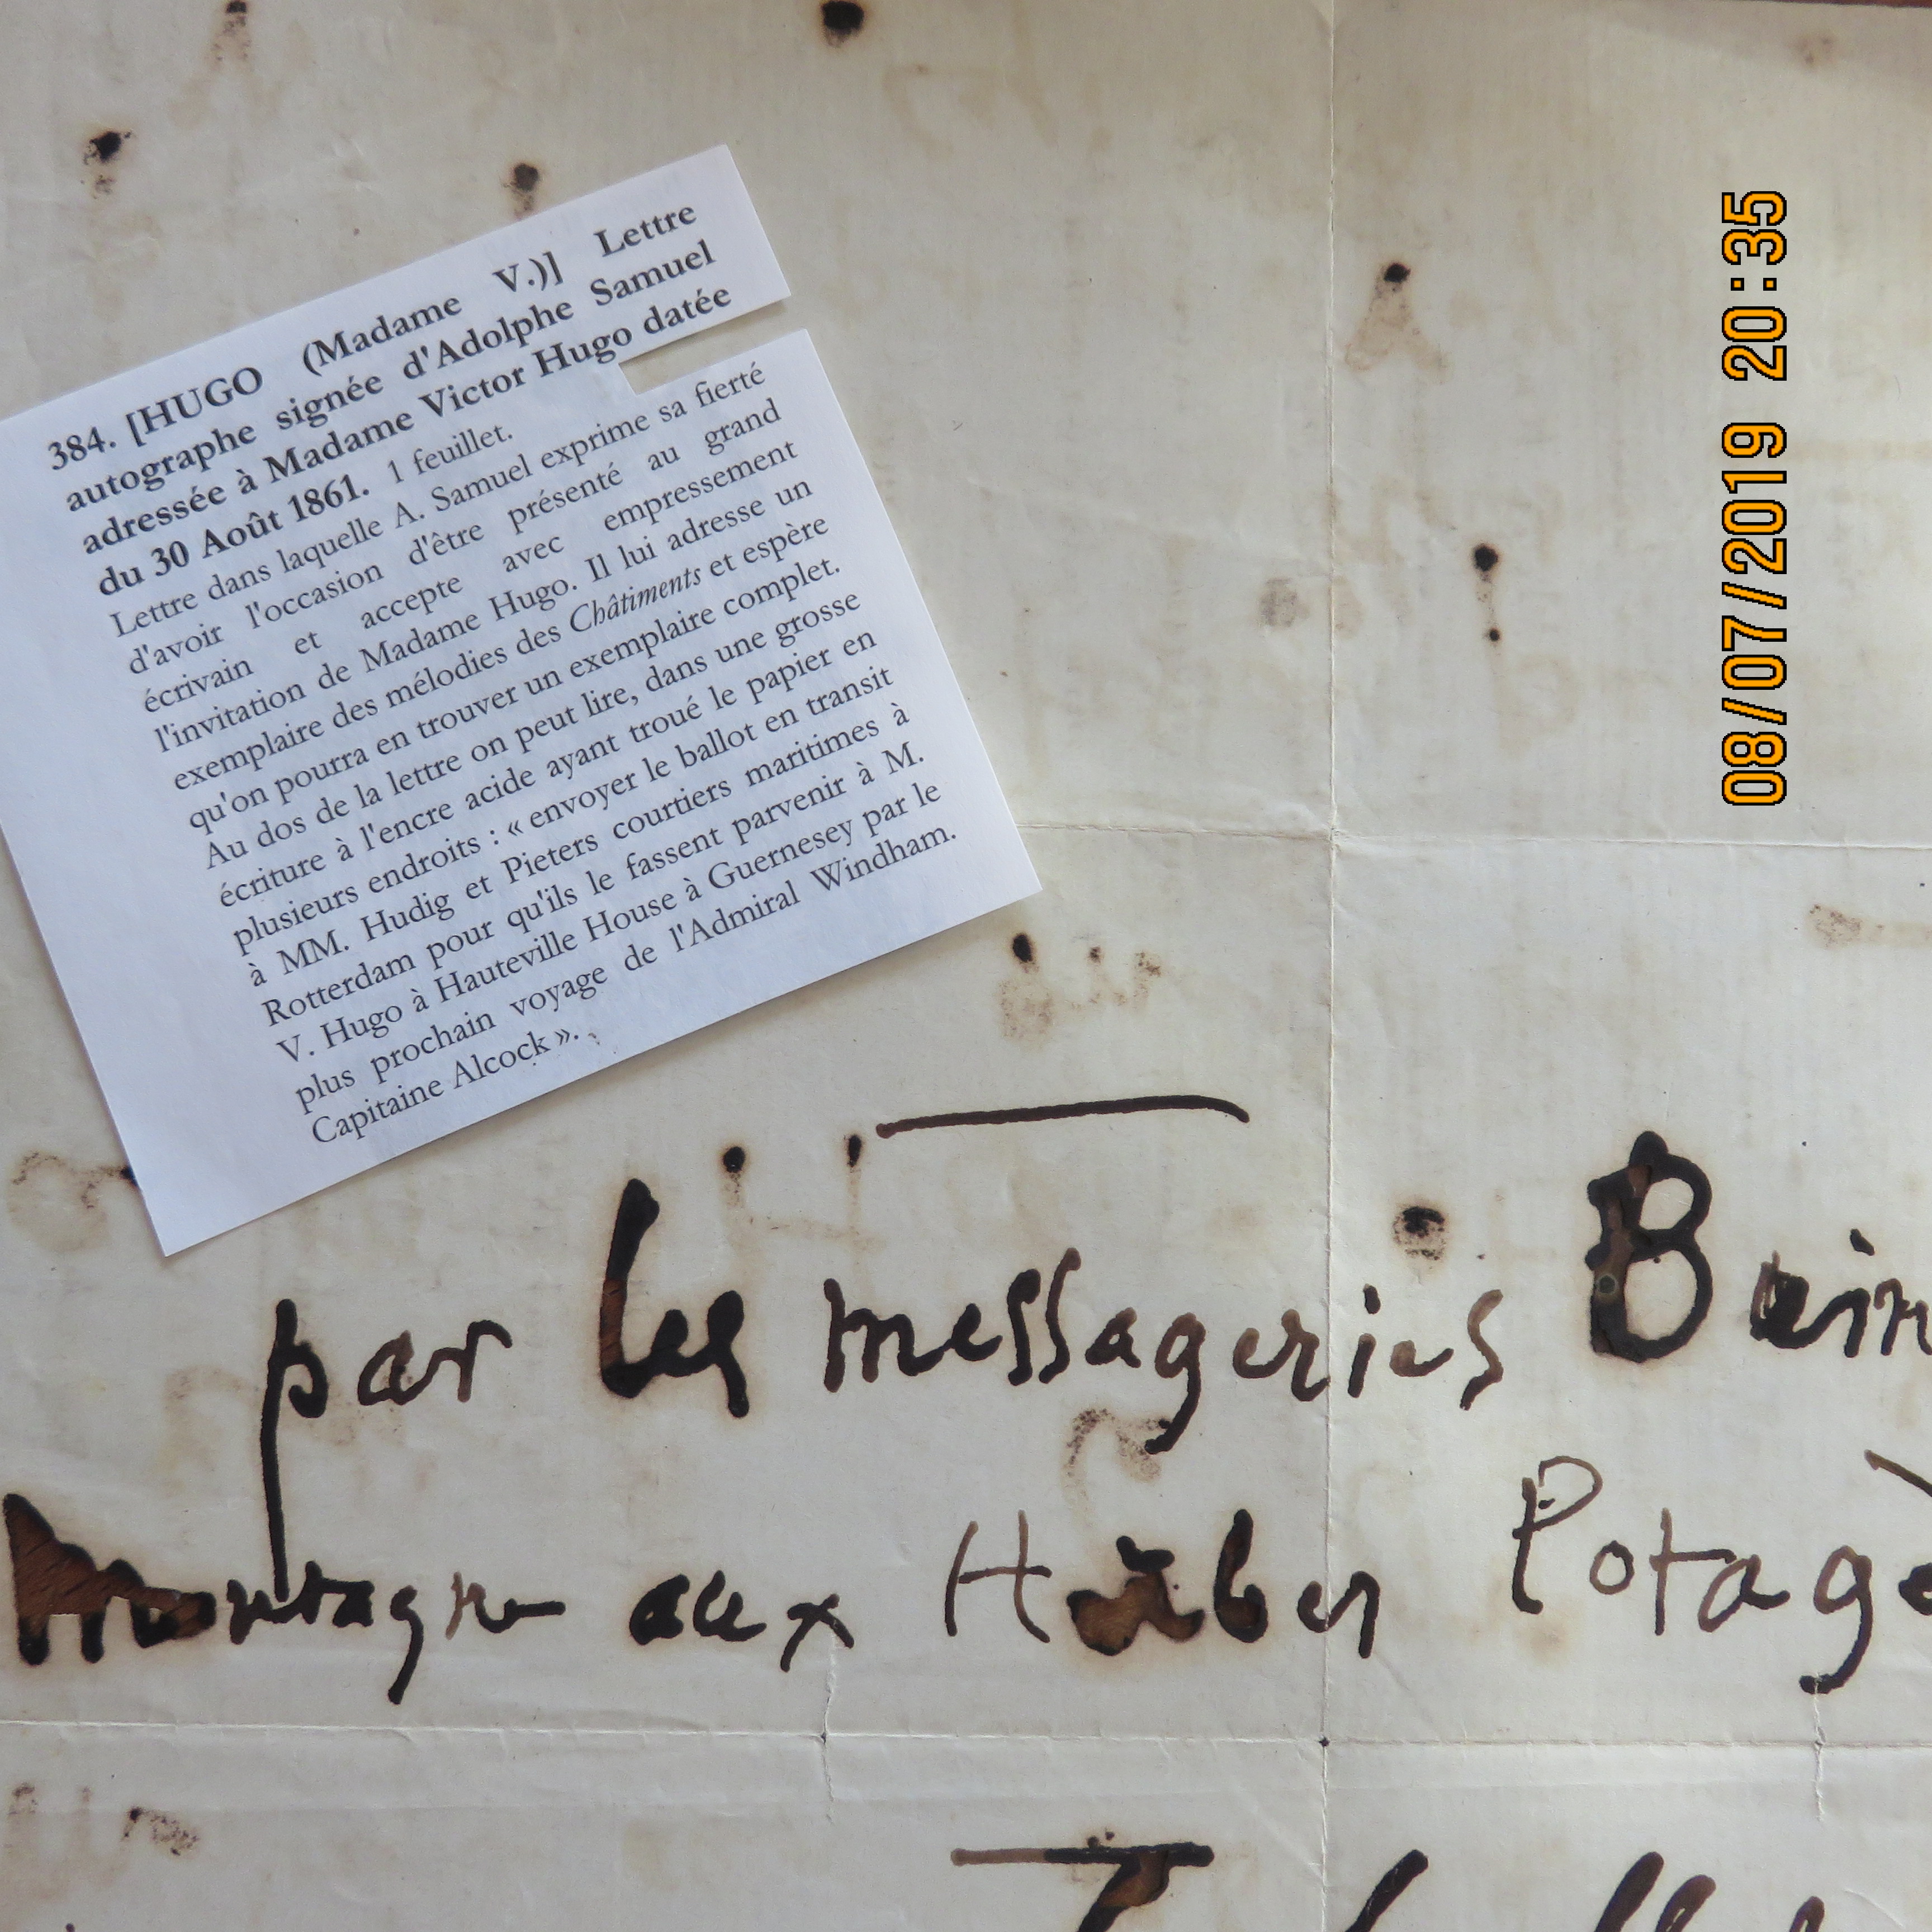 384. [HUGO (Madame V.)] Lettre
autographe signée d'Adolphe Samuel
adressée à Madame Victor Hugo datée
du 30 Août 1861. 1 feuillet.
Lettre dans laquelle A. Samuel exprime sa fierté
d'avoir l'occasion d'être présenté au grand
écrivain et accepte avec empressement
l'invitation de Madame Hugo. Il lui adresse un
exemplaire des mélodies des Châtiments et espère
qu'on pourra en trouver un exemplaire complet.
Au dos de la lettre on peut lire, dans une grosse
écriture à l'encre acide ayant troué le papier en
plusieurs endroits : « envoyer le ballot en transit
à MM. Hudig et Pieters courtiers maritimes à
Rotterdam pour qu'ils le fassent parvenir à M.
V. Hugo à Hauteville House à Guernesey par le
plus prochain voyage de l'Admiral Windham.
Capitaine Alcock ».
08/07/2019 20:35
par les messageries
montagne aux Herbes Potagè